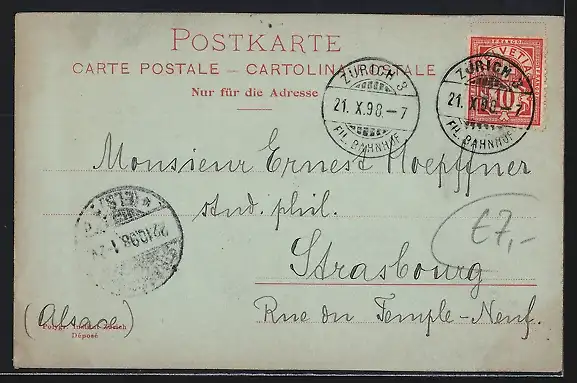 POSTKARTE
CARTE POSTALE – CARTOLINA POSTALE
Nur für die Adresse
HELVETIA
FRANCO
10
ZÜRICH 3
21. X. 98. – 7
FIL. BAHNHOF
ZÜRICH 3
21. X. 98. – 7
FIL. BAHNHOF
Monsieur Ernest Hoepffner
stud. phil.
Strasbourg
£7,-
Rue du Temple-Neuf.
(Alsace)
(ELS.)
22.10.98. 1-2
Polygr. Institut Zürich
Déposé